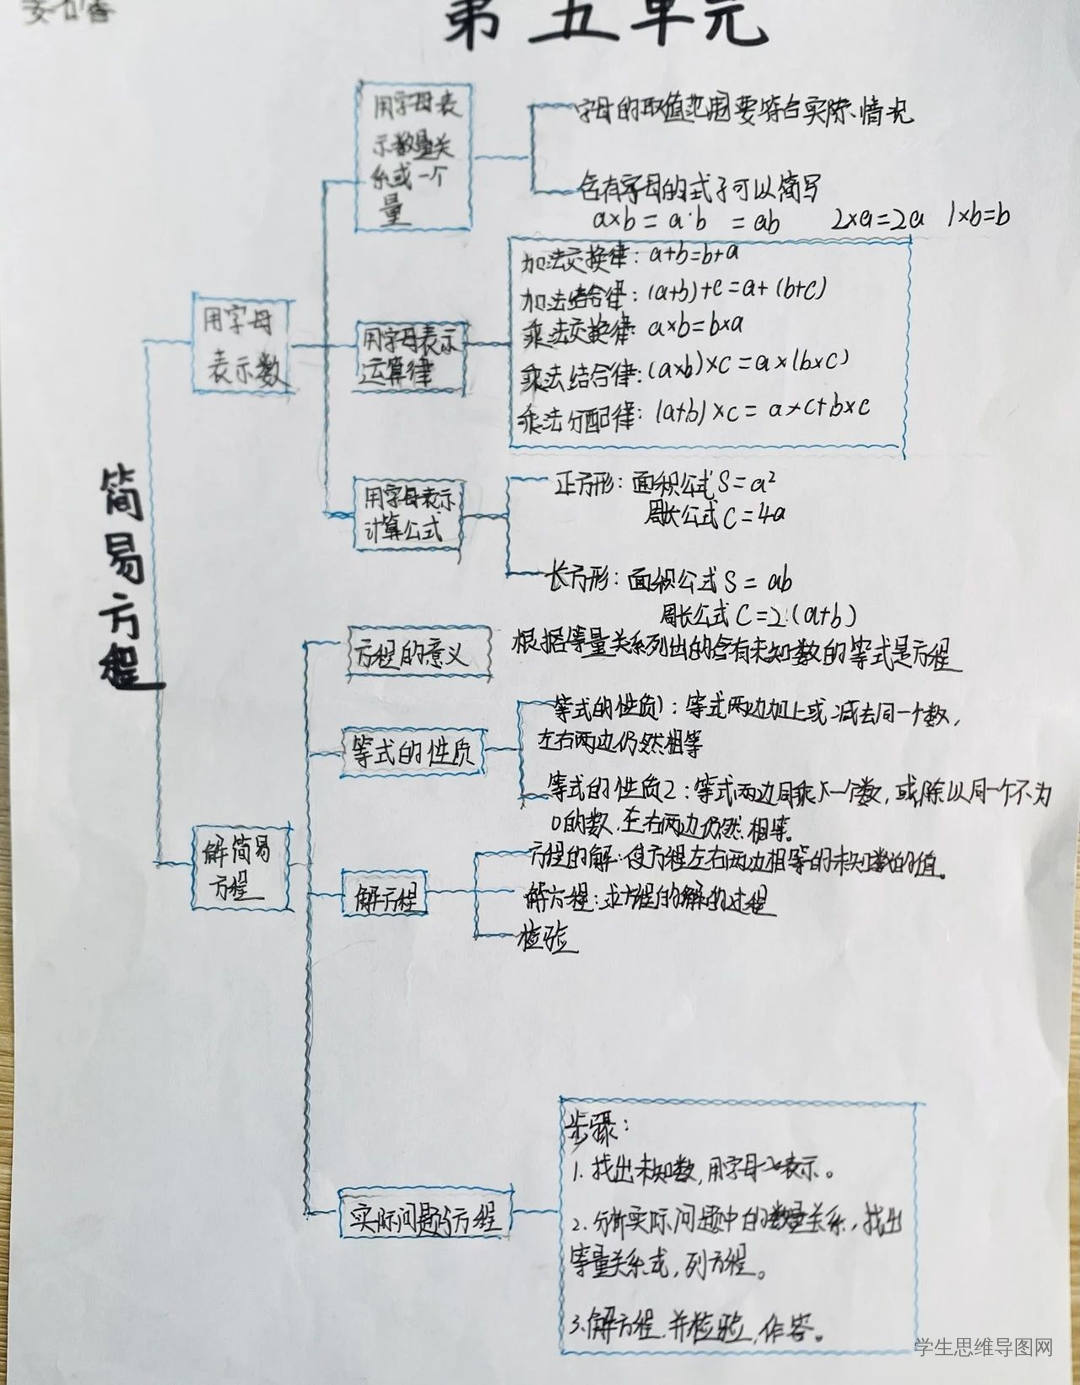 第五单元
简易方程
用字母
表示数
用字母表
示数量关
系或一个
量
字母的取值范围要符合实际情况
含有字母的式子可以简写
a×b=a·b =ab 2×a=2a 1×b=b
用字母表示
运算律
加法交换律：a+b=b+a
加法结合律：(a+b)+c=a+(b+c)
乘法交换律：a×b=b×a
乘法结合律：(a×b)×c=a×(b×c)
乘法分配律：(a+b)×c=a×c+b×c
用字母表示
计算公式
正方形：面积公式S=a²
周长公式C=4a
长方形：面积公式S=ab
周长公式C=2·(a+b)
解简易
方程
方程的意义
根据等量关系列出的含有未知数的等式是方程
等式的性质
等式的性质1：等式两边加上或减去同一个数，
左右两边仍然相等
等式的性质2：等式两边同乘一个数，或除以同一个不为
0的数，左右两边仍然相等。
解方程
方程的解：使方程左右两边相等的未知数的值。
解方程：求方程的解的过程
检验
实际问题与方程
步骤：
1.找出未知数，用字母x表示。
2.分析实际问题中的数量关系，找出
等量关系式，列方程。
3.解方程，并检验，作答。
学生思维导图网